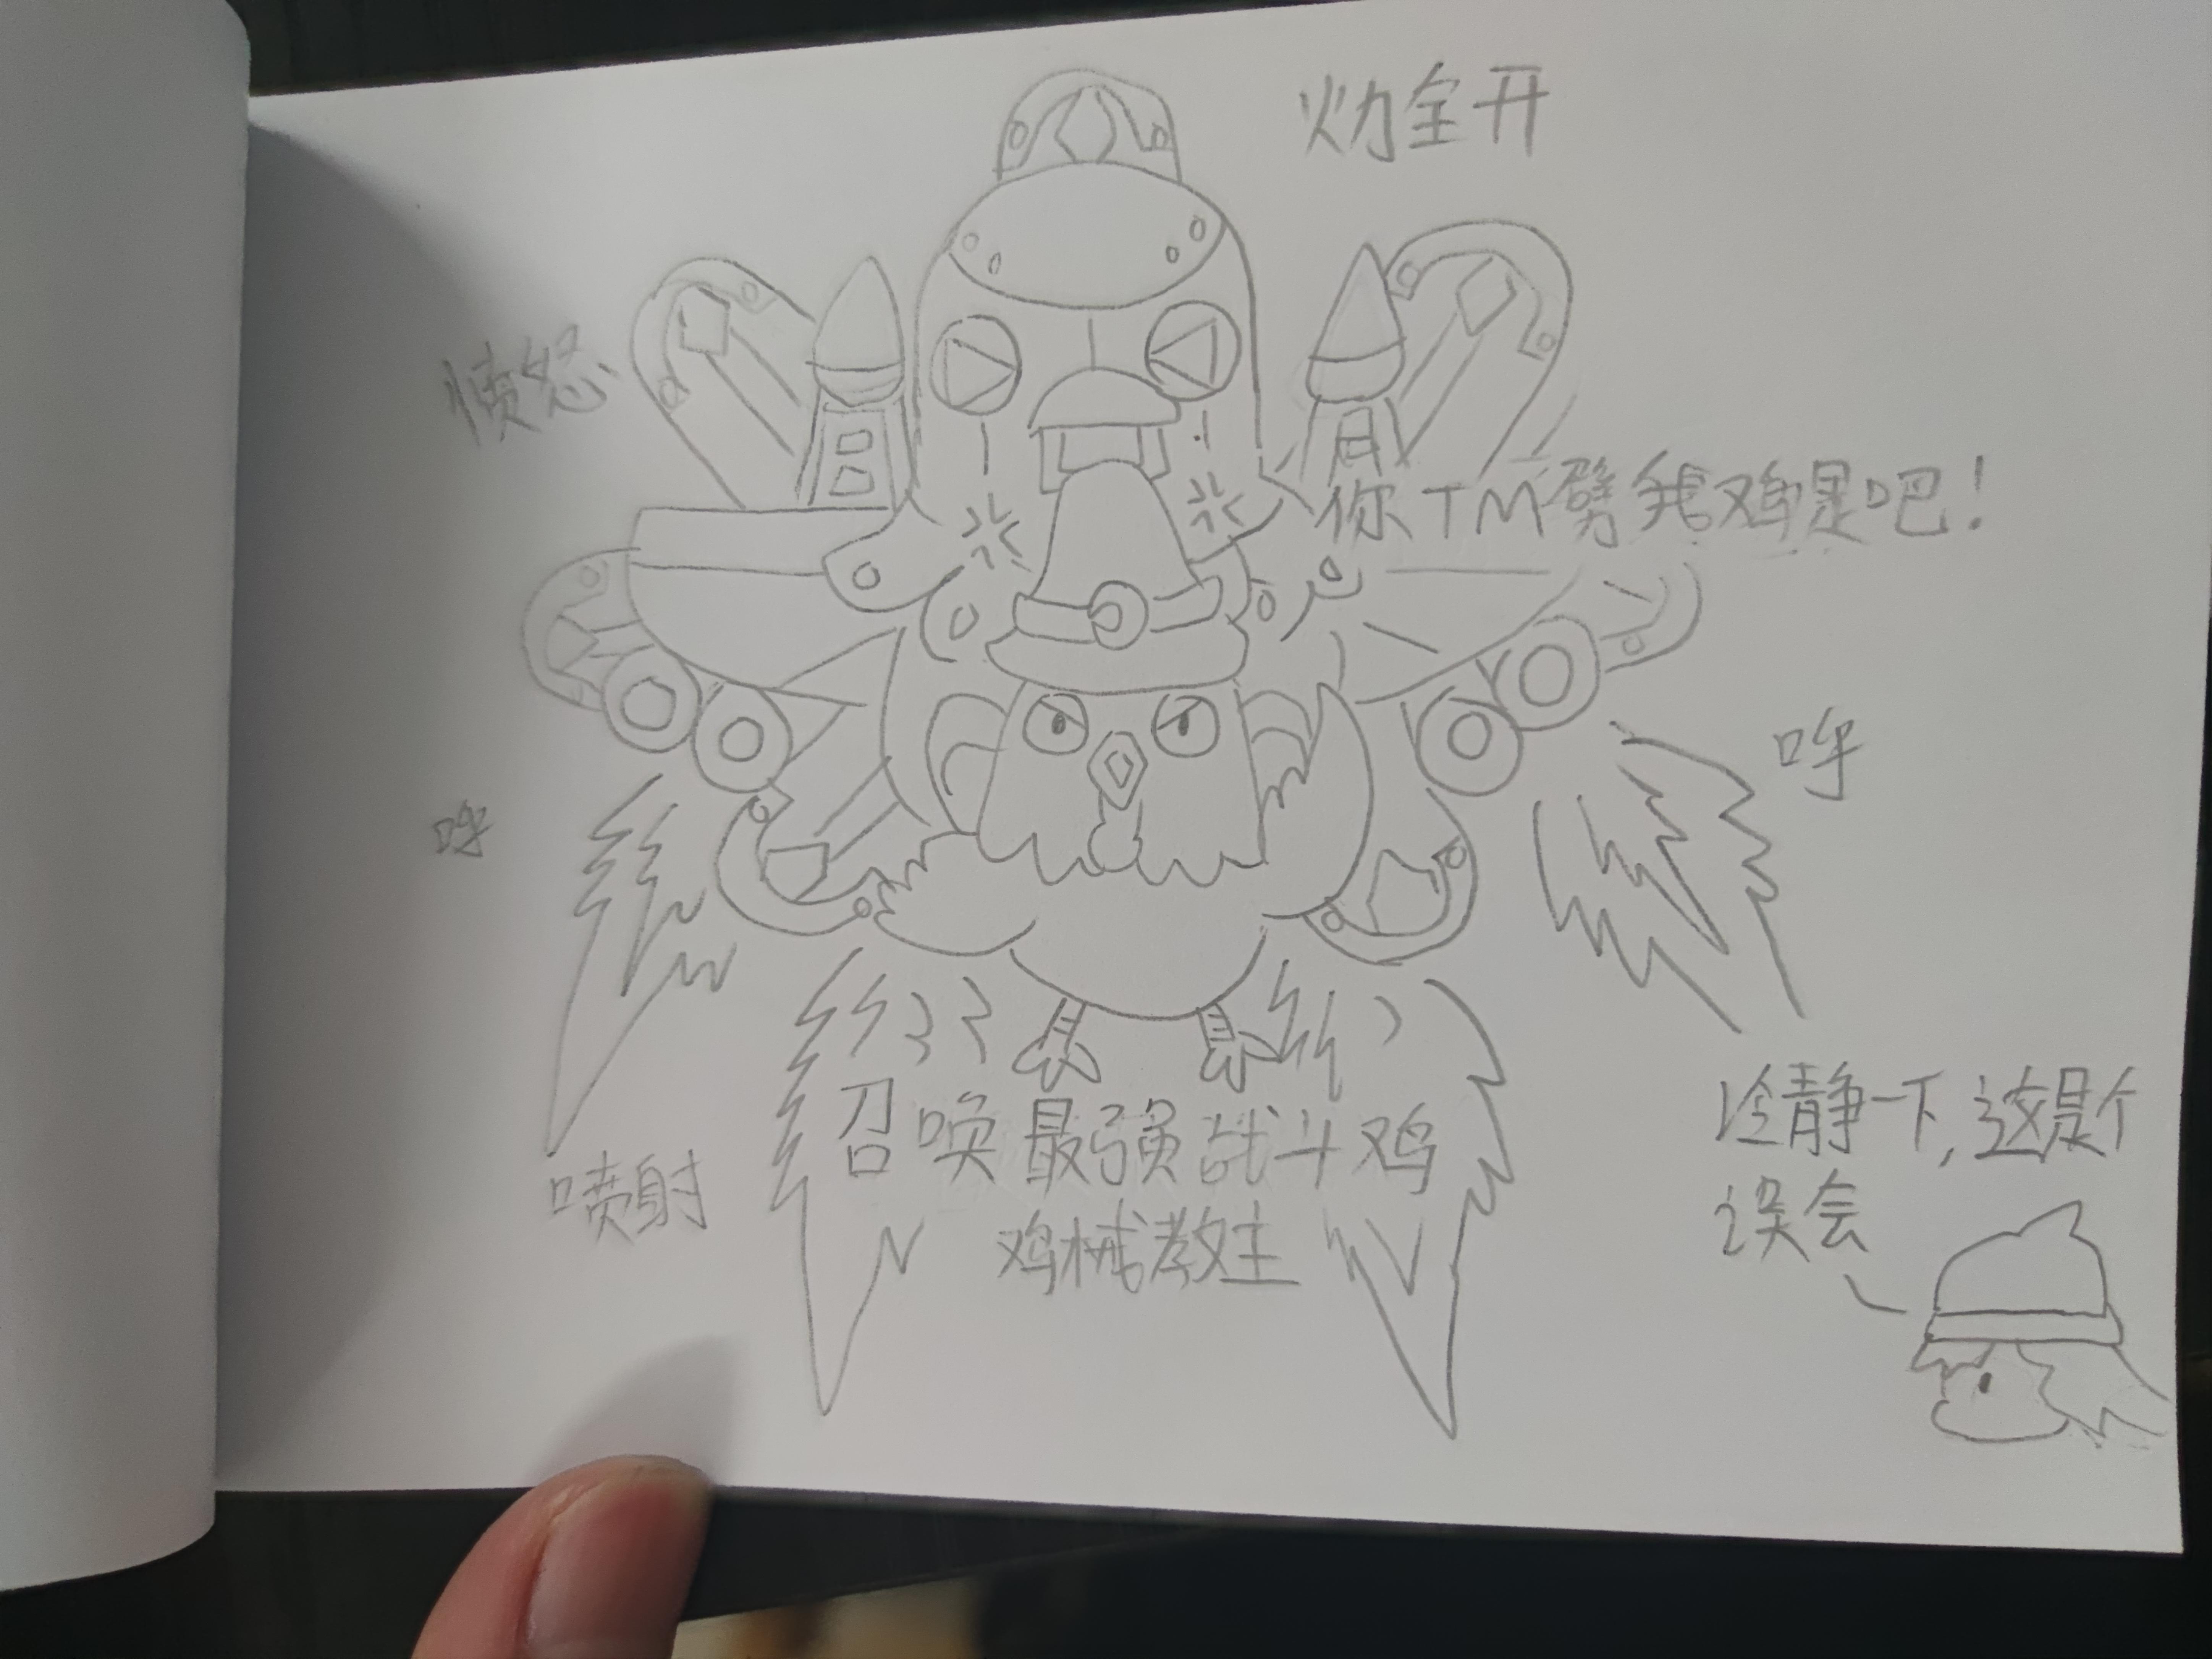 火力全开
愤怒
你TM劈我鸡是吧！
呼
呼
喷射
召唤最强战斗鸡
鸡械教主
冷静一下，这是个
误会